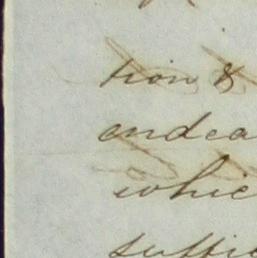 tion &
endea
whic
suffic